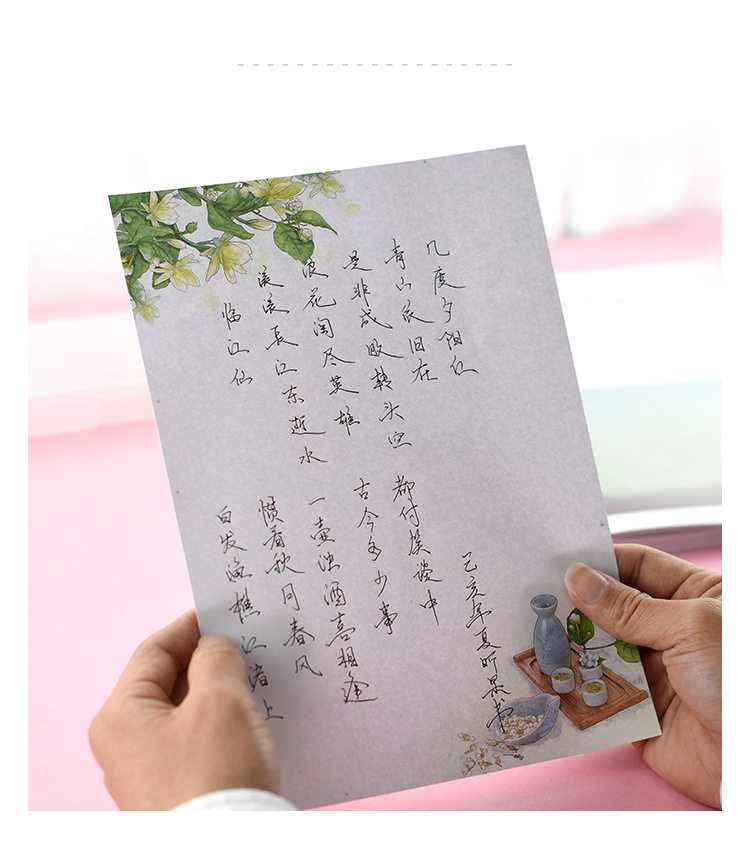 临江仙
滚滚長江东逝水
浪花淘尽英雄
是非成败转头空
青山依旧在
几度夕阳红
白发渔樵江渚上
惯看秋月春风
一壶浊酒喜相逢
古今多少事
都付笑谈中
己亥年夏昕书